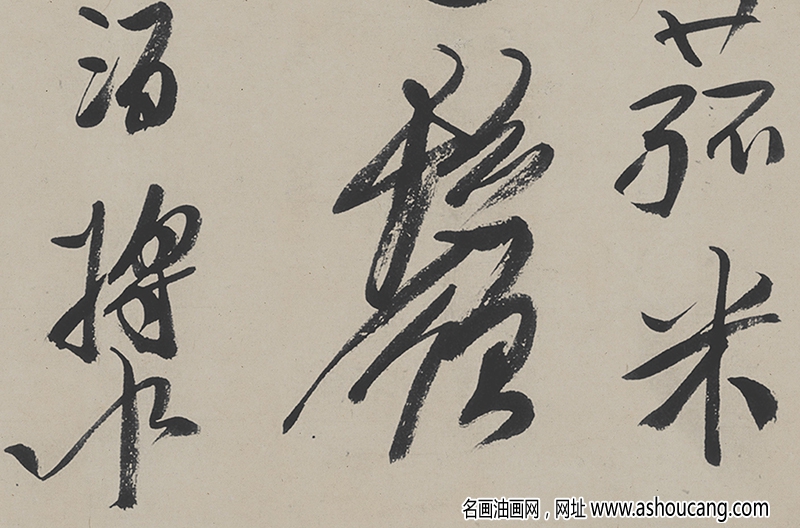 菰米
酒漿
名画油画网，网址 www.ashoucang.com